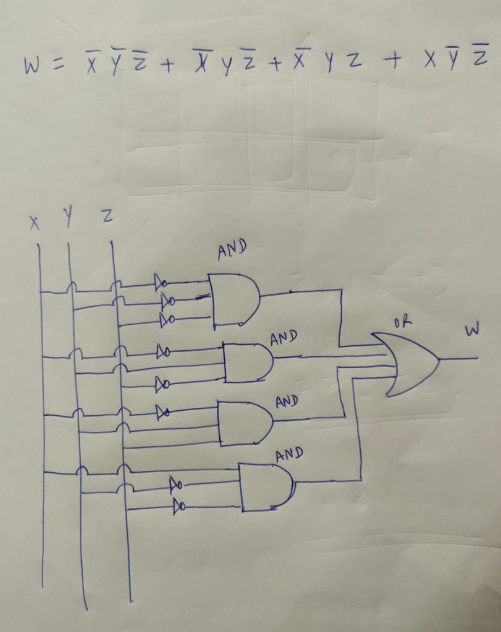 W = X̅ Y̅ Z̅ + X̅ Y Z̅ + X̅ Y Z + X Y̅ Z̅
X Y Z
AND
OR
W
AND
AND
AND